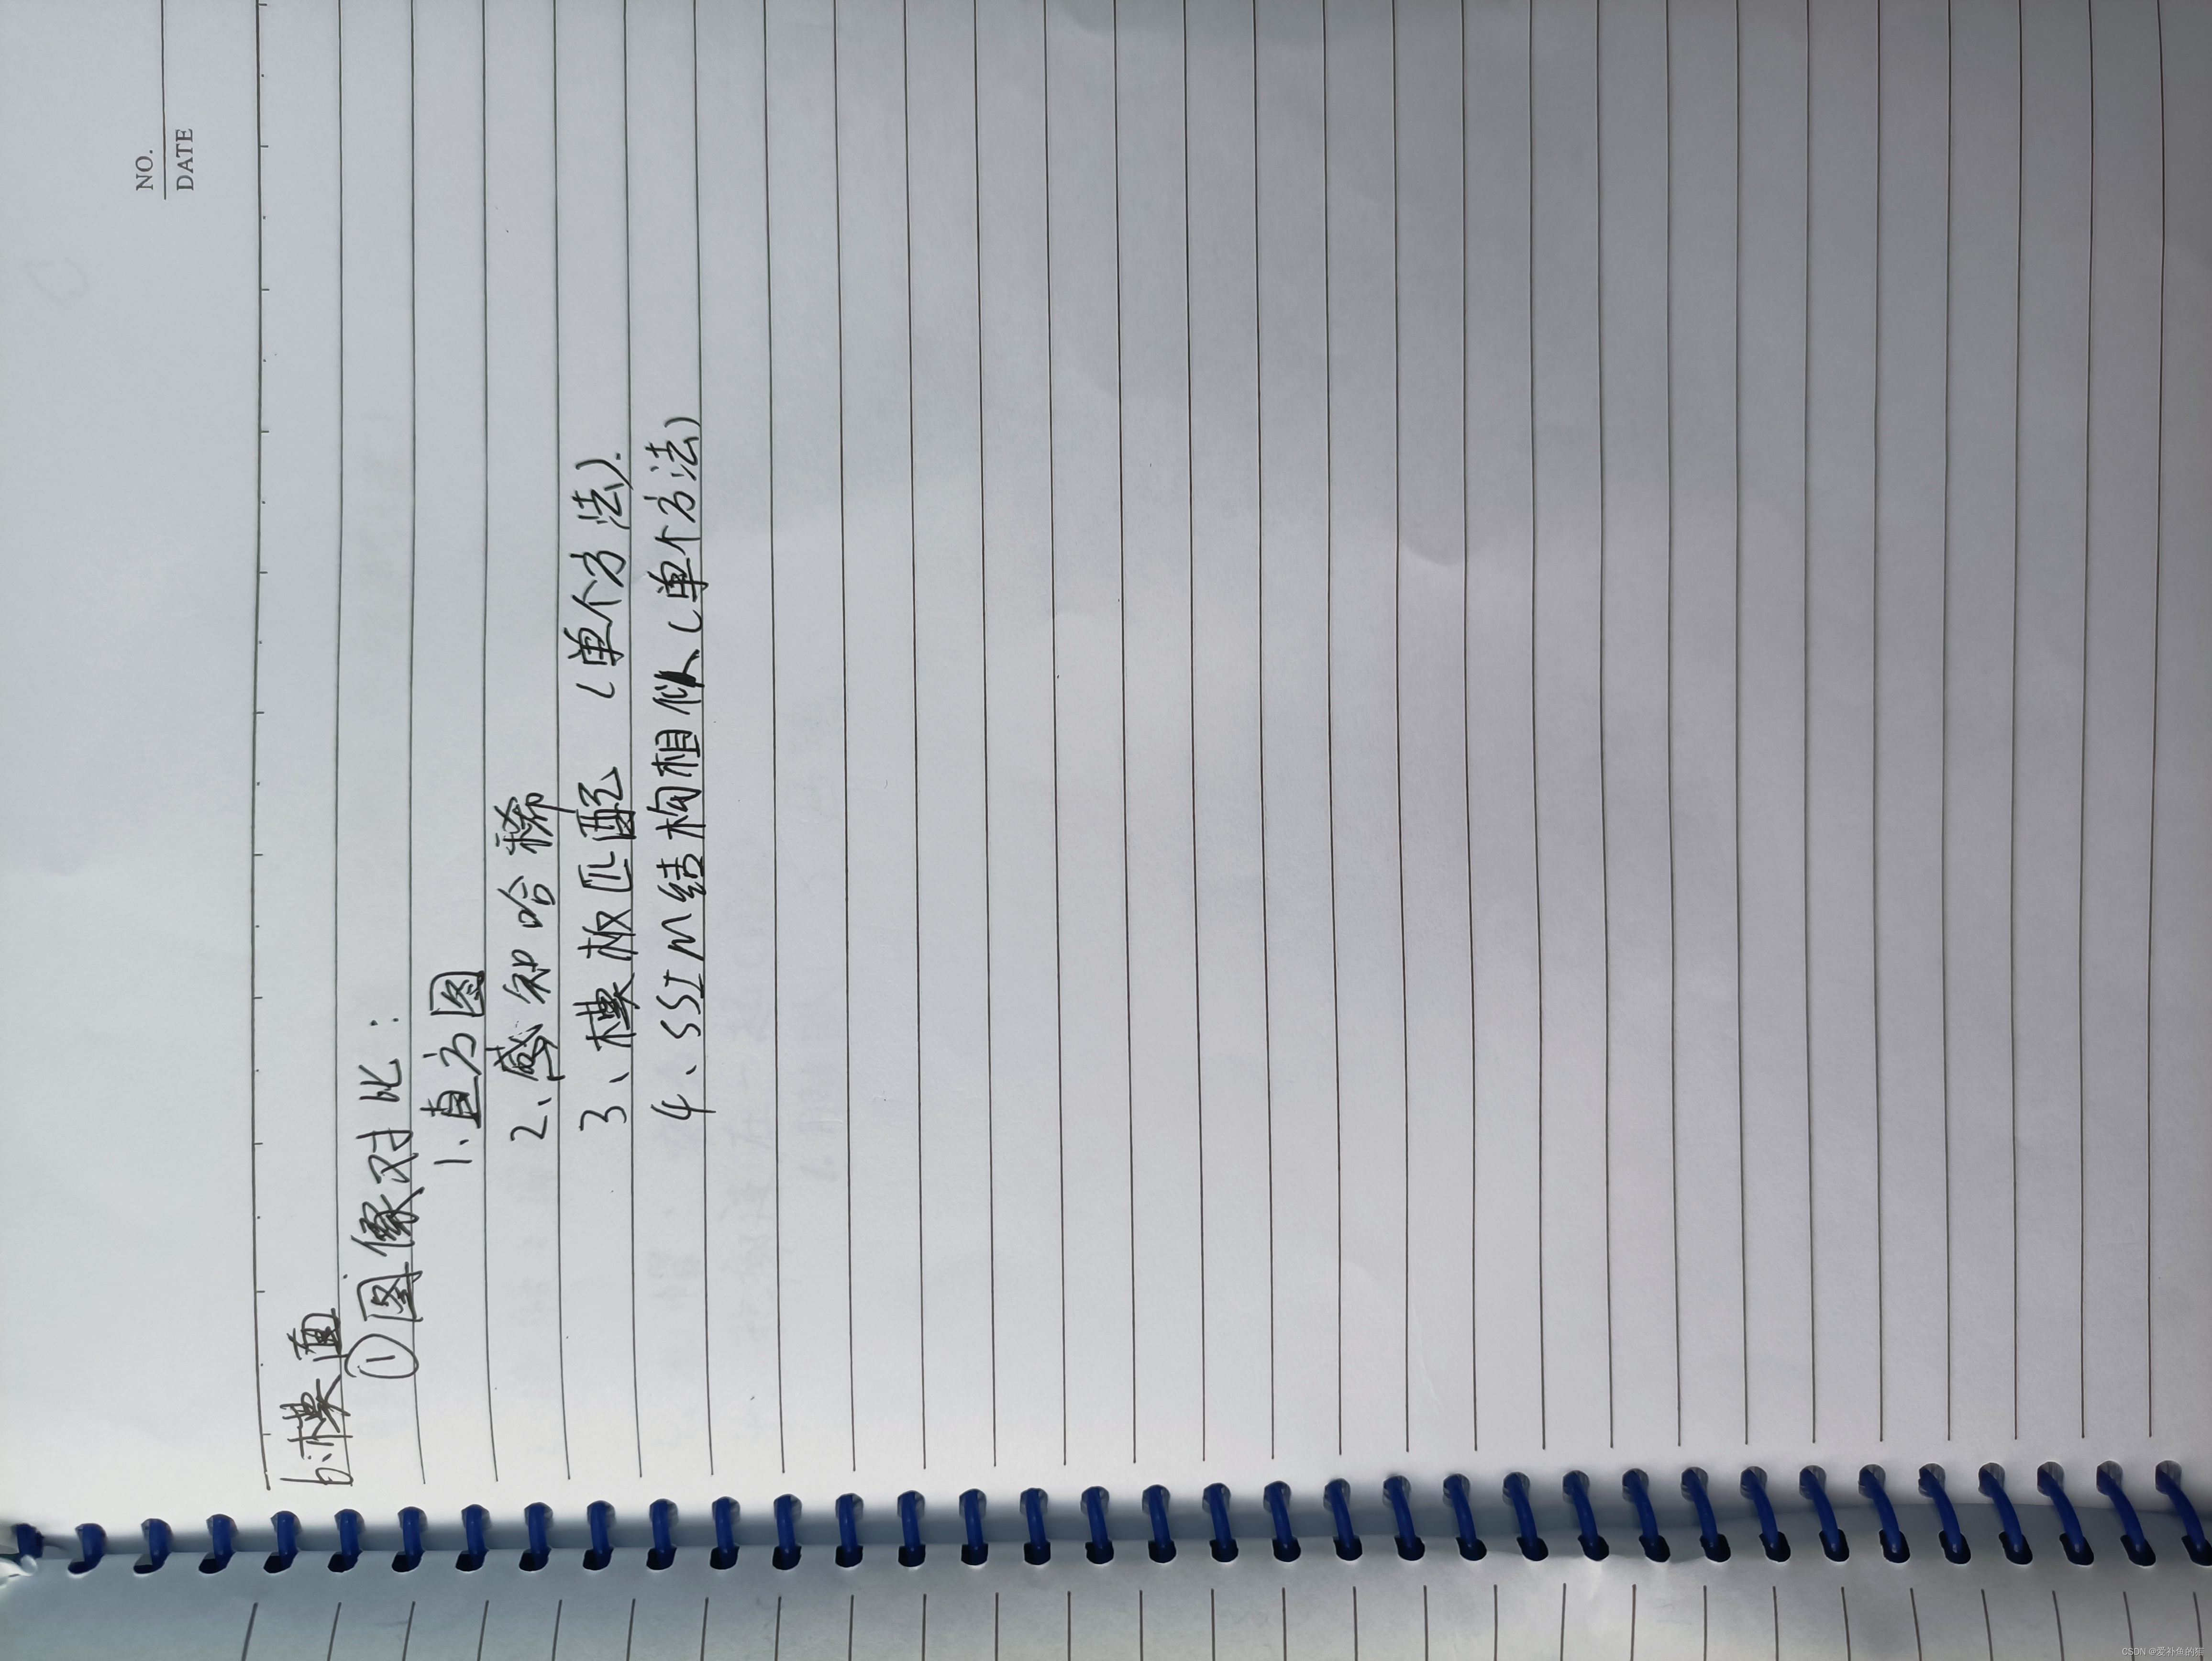 NO.
DATE
b.模面
①图像对比:
1.直方图
2、感知哈稀
3、模板匹配 (单个方法).
4、SSIM结构相似(单个方法)
CSDN @爱补鱼的猫